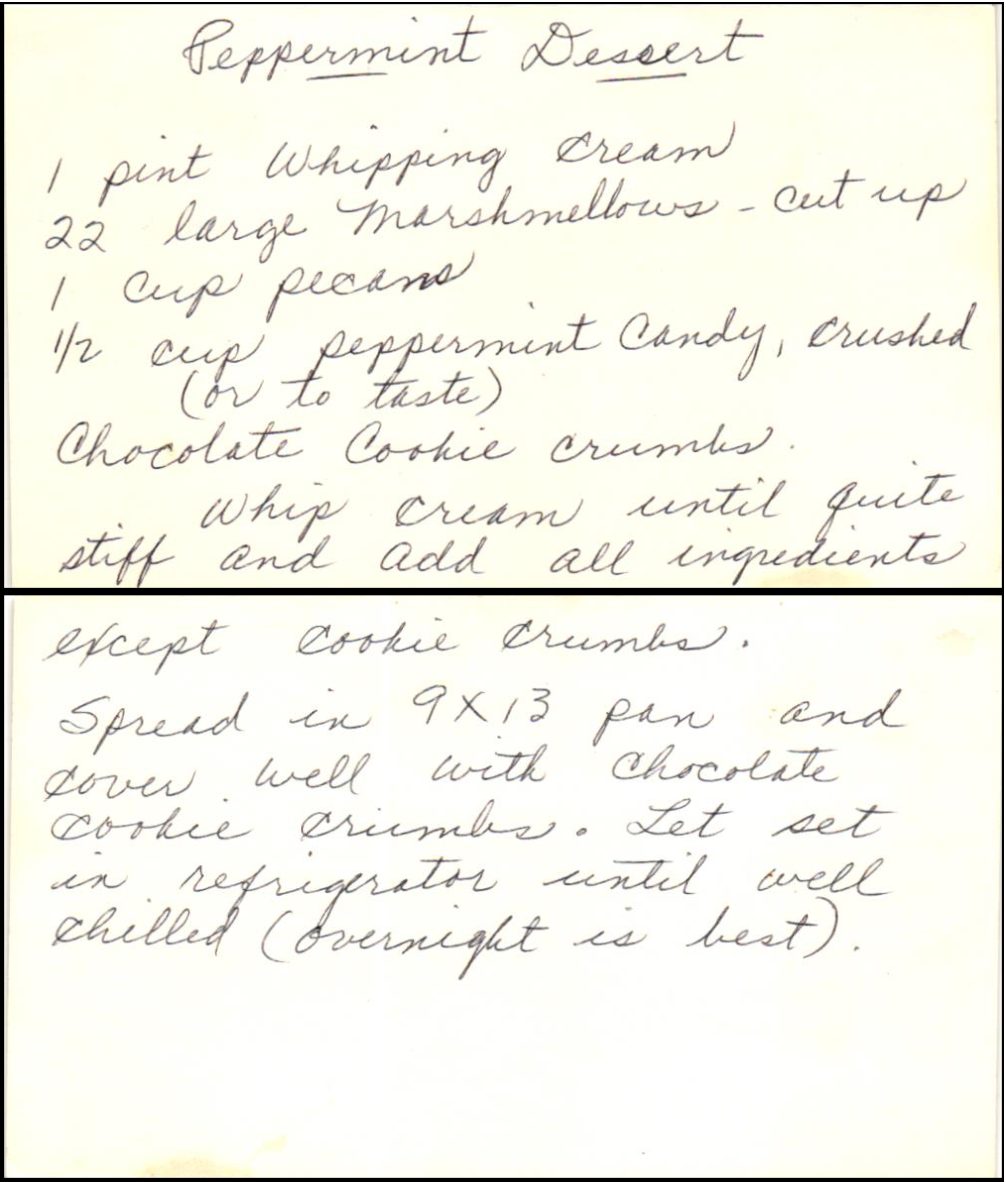 Peppermint Dessert
1 pint Whipping Cream
22 large Marshmellows - cut up
1 Cup pecans
1/2 cup peppermint Candy, crushed
(or to taste)
Chocolate Cookie crumbs.
Whip cream until quite
stiff and add all ingredients
except cookie crumbs.
Spread in 9X13 pan and
cover well with chocolate
cookie crumbs. Let set
in refrigerator until well
chilled (overnight is best).